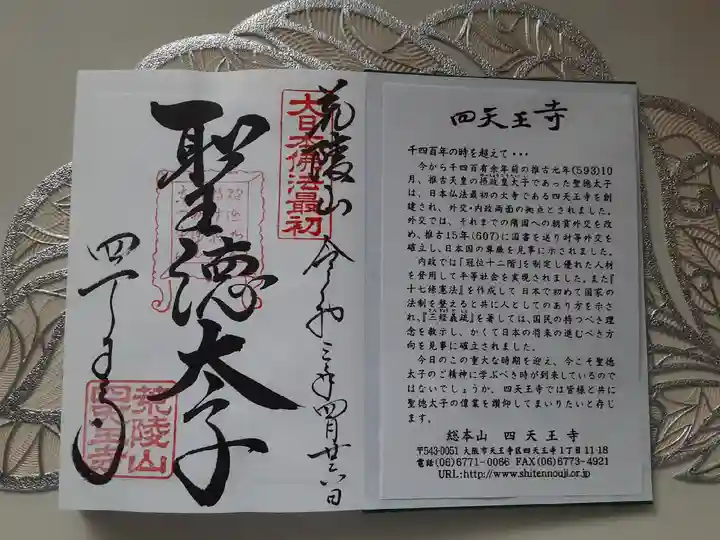 荒陵山
令和三年四月廿六日
大日本佛法最初
聖徳太子
四天王寺
荒陵山
四天王寺
四天王寺
千四百年の時を越えて・・・
今から千四百有余年前の推古元年(593)10
月、推古天皇の摂政皇太子であった聖徳太子
は、日本仏法最初の大寺である四天王寺を創
建され、外交・内政両面の拠点とされました。
外交では、それまでの隣国への朝貢外交を改
め、推古15年(607)に国書を送り対等外交を
確立し、日本国の尊厳を見事に示されました。
内政では「冠位十二階」を制定し優れた人材
を登用して平等社会を実現されました。また『
十七條憲法』を作成して日本で初めて国家の
法制を整えると共に人としてのあり方を示さ
れ、『三経義疏』を著しては、国民の持つべき理
念を教示し、かくて日本の将来の進むべき方
向を見事に確立されました。
今日のこの重大な時期を迎え、今こそ聖徳
太子のご精神に学ぶべき時が到来しているので
はないでしょうか。四天王寺では皆様と共に
聖徳太子の偉業を讃仰してまいりたいと存じ
ます。
総本山 四天王寺
〒543-0051 大阪市天王寺区四天王寺1丁目11-18
電話(06)6771-0066 FAX(06)6773-4921
URL:http://www.shitennouji.or.jp